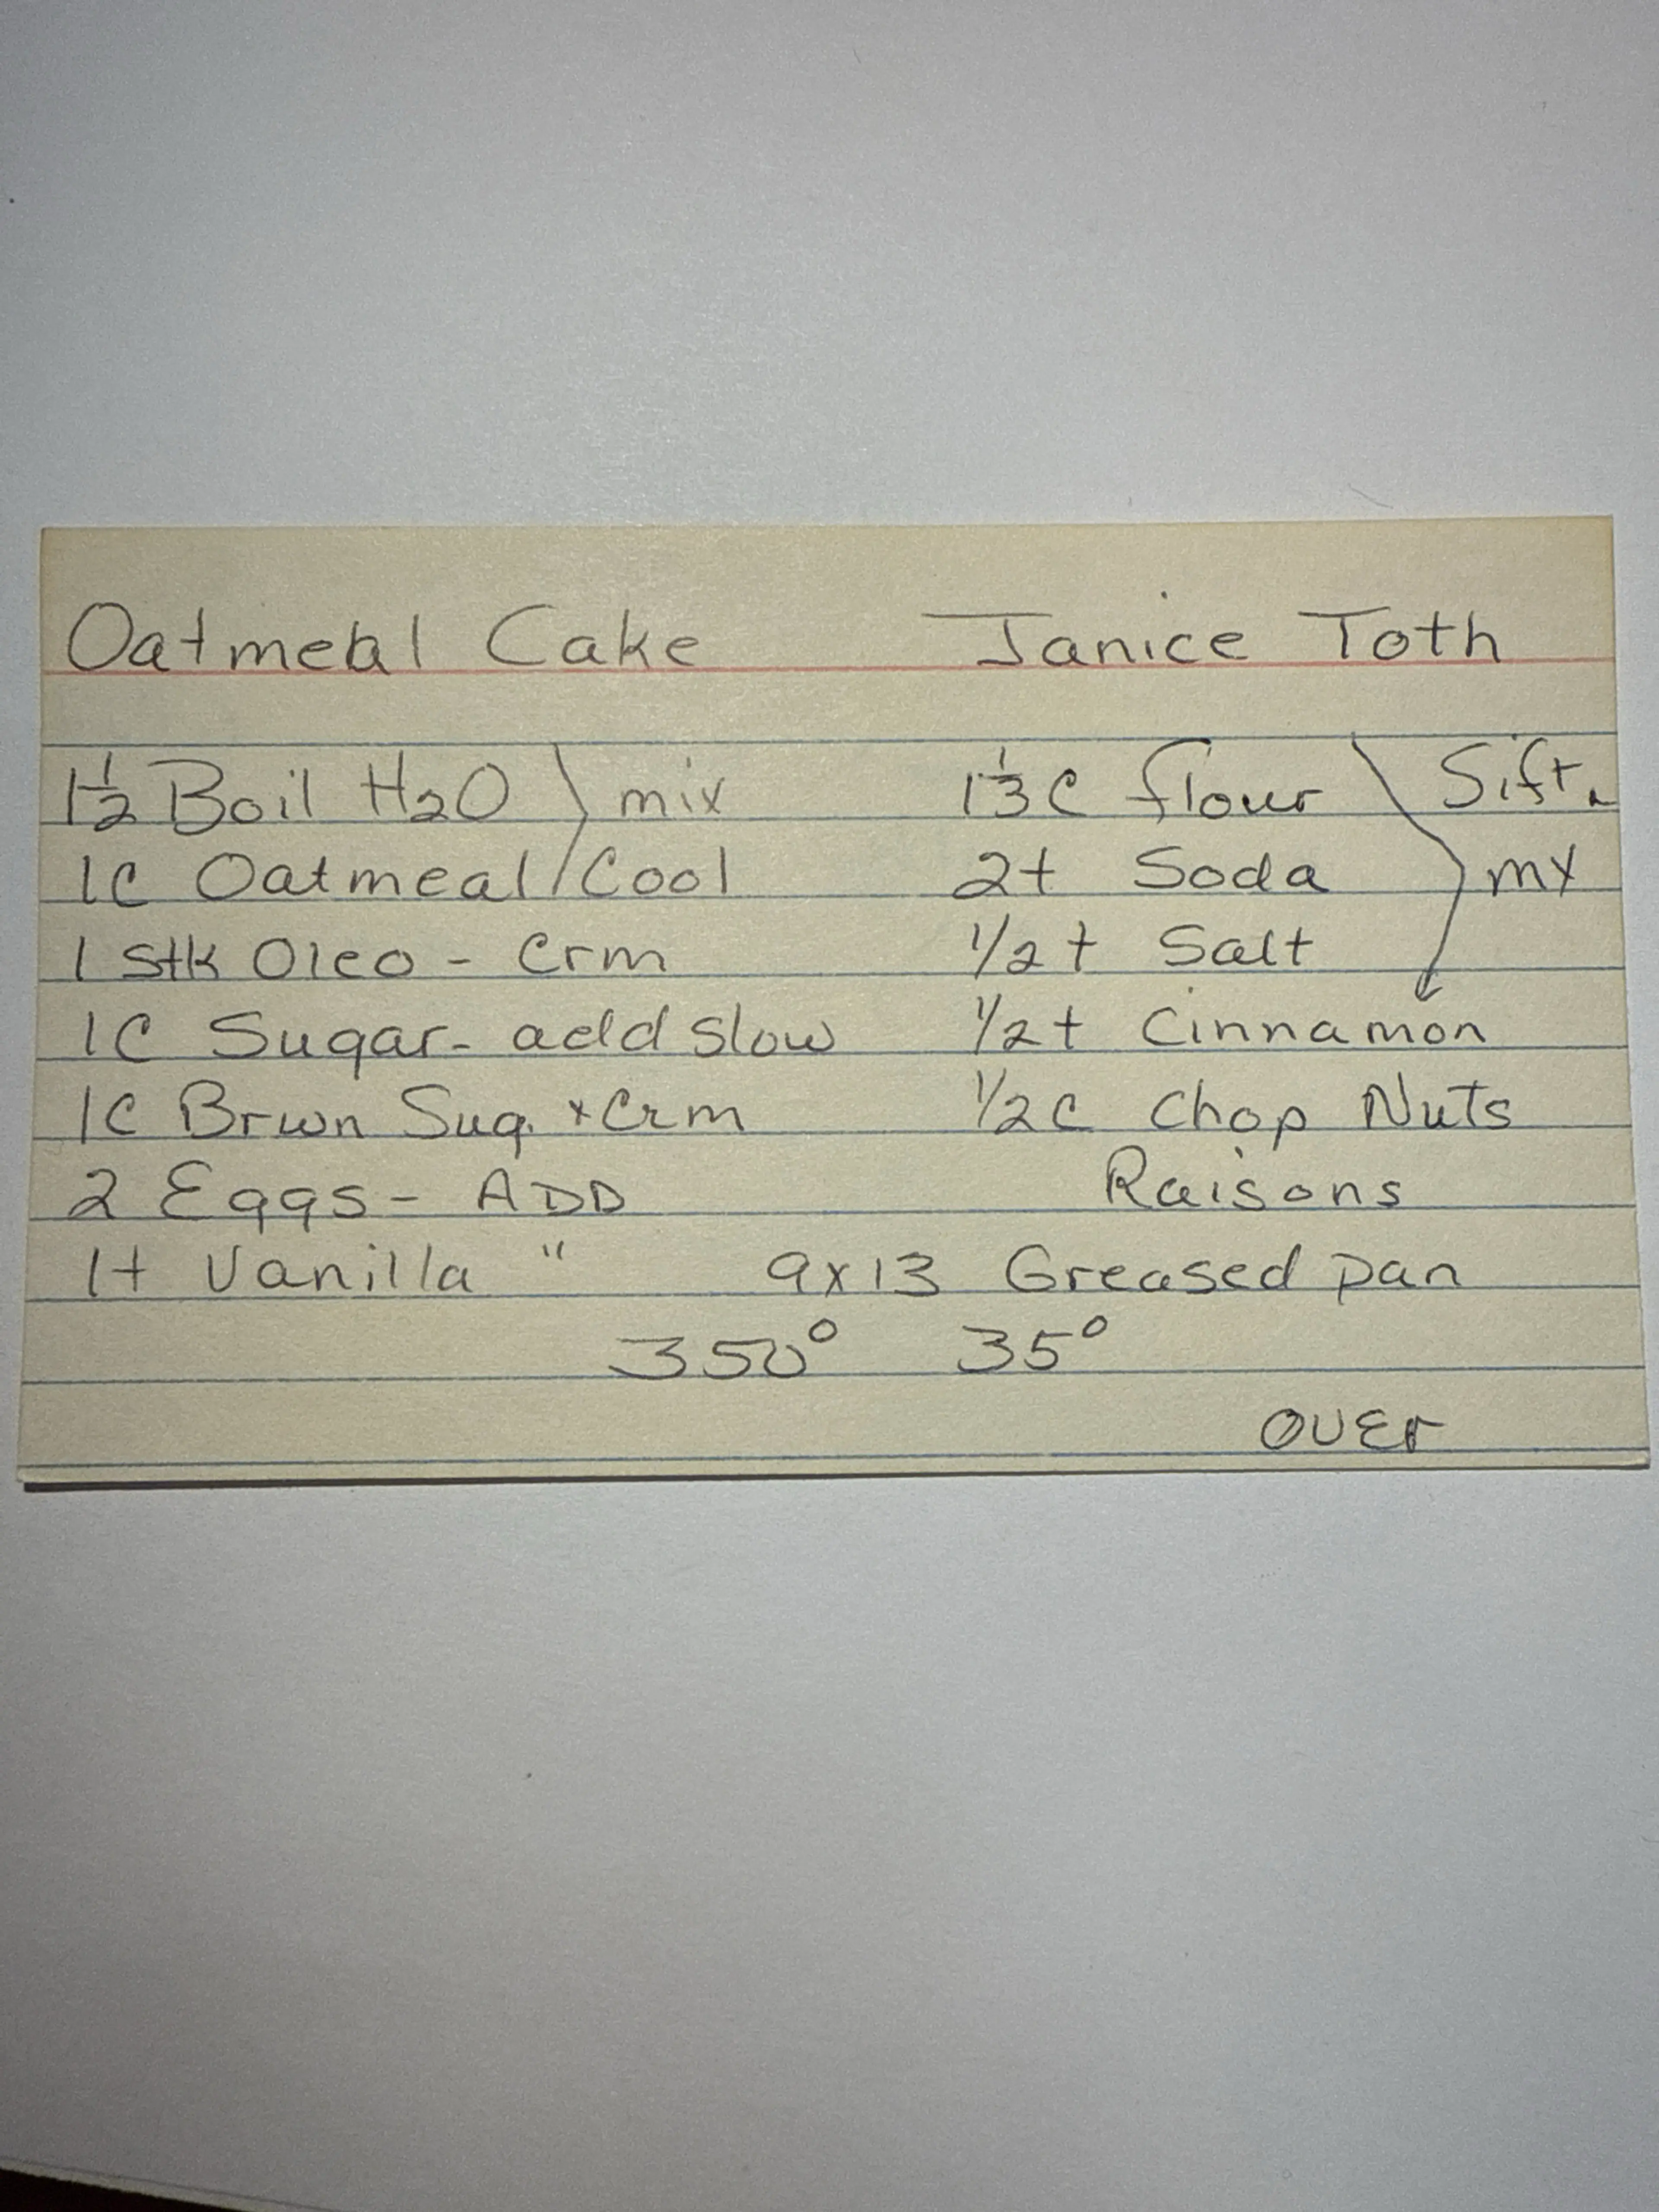 Oatmeal Cake Janice Toth
1½ Boil H2O mix
1C Oatmeal Cool
1 Stk Oleo - Crm
1C Sugar - add slow
1C Brwn Sug. + Crm
2 Eggs - ADD
1t Vanilla "
1⅓C flour Sift.
2t Soda mx
1/2t Salt
1/2t Cinnamon
1/2C Chop Nuts
Raisons
9x13 Greased pan
350° 35°
OVEr